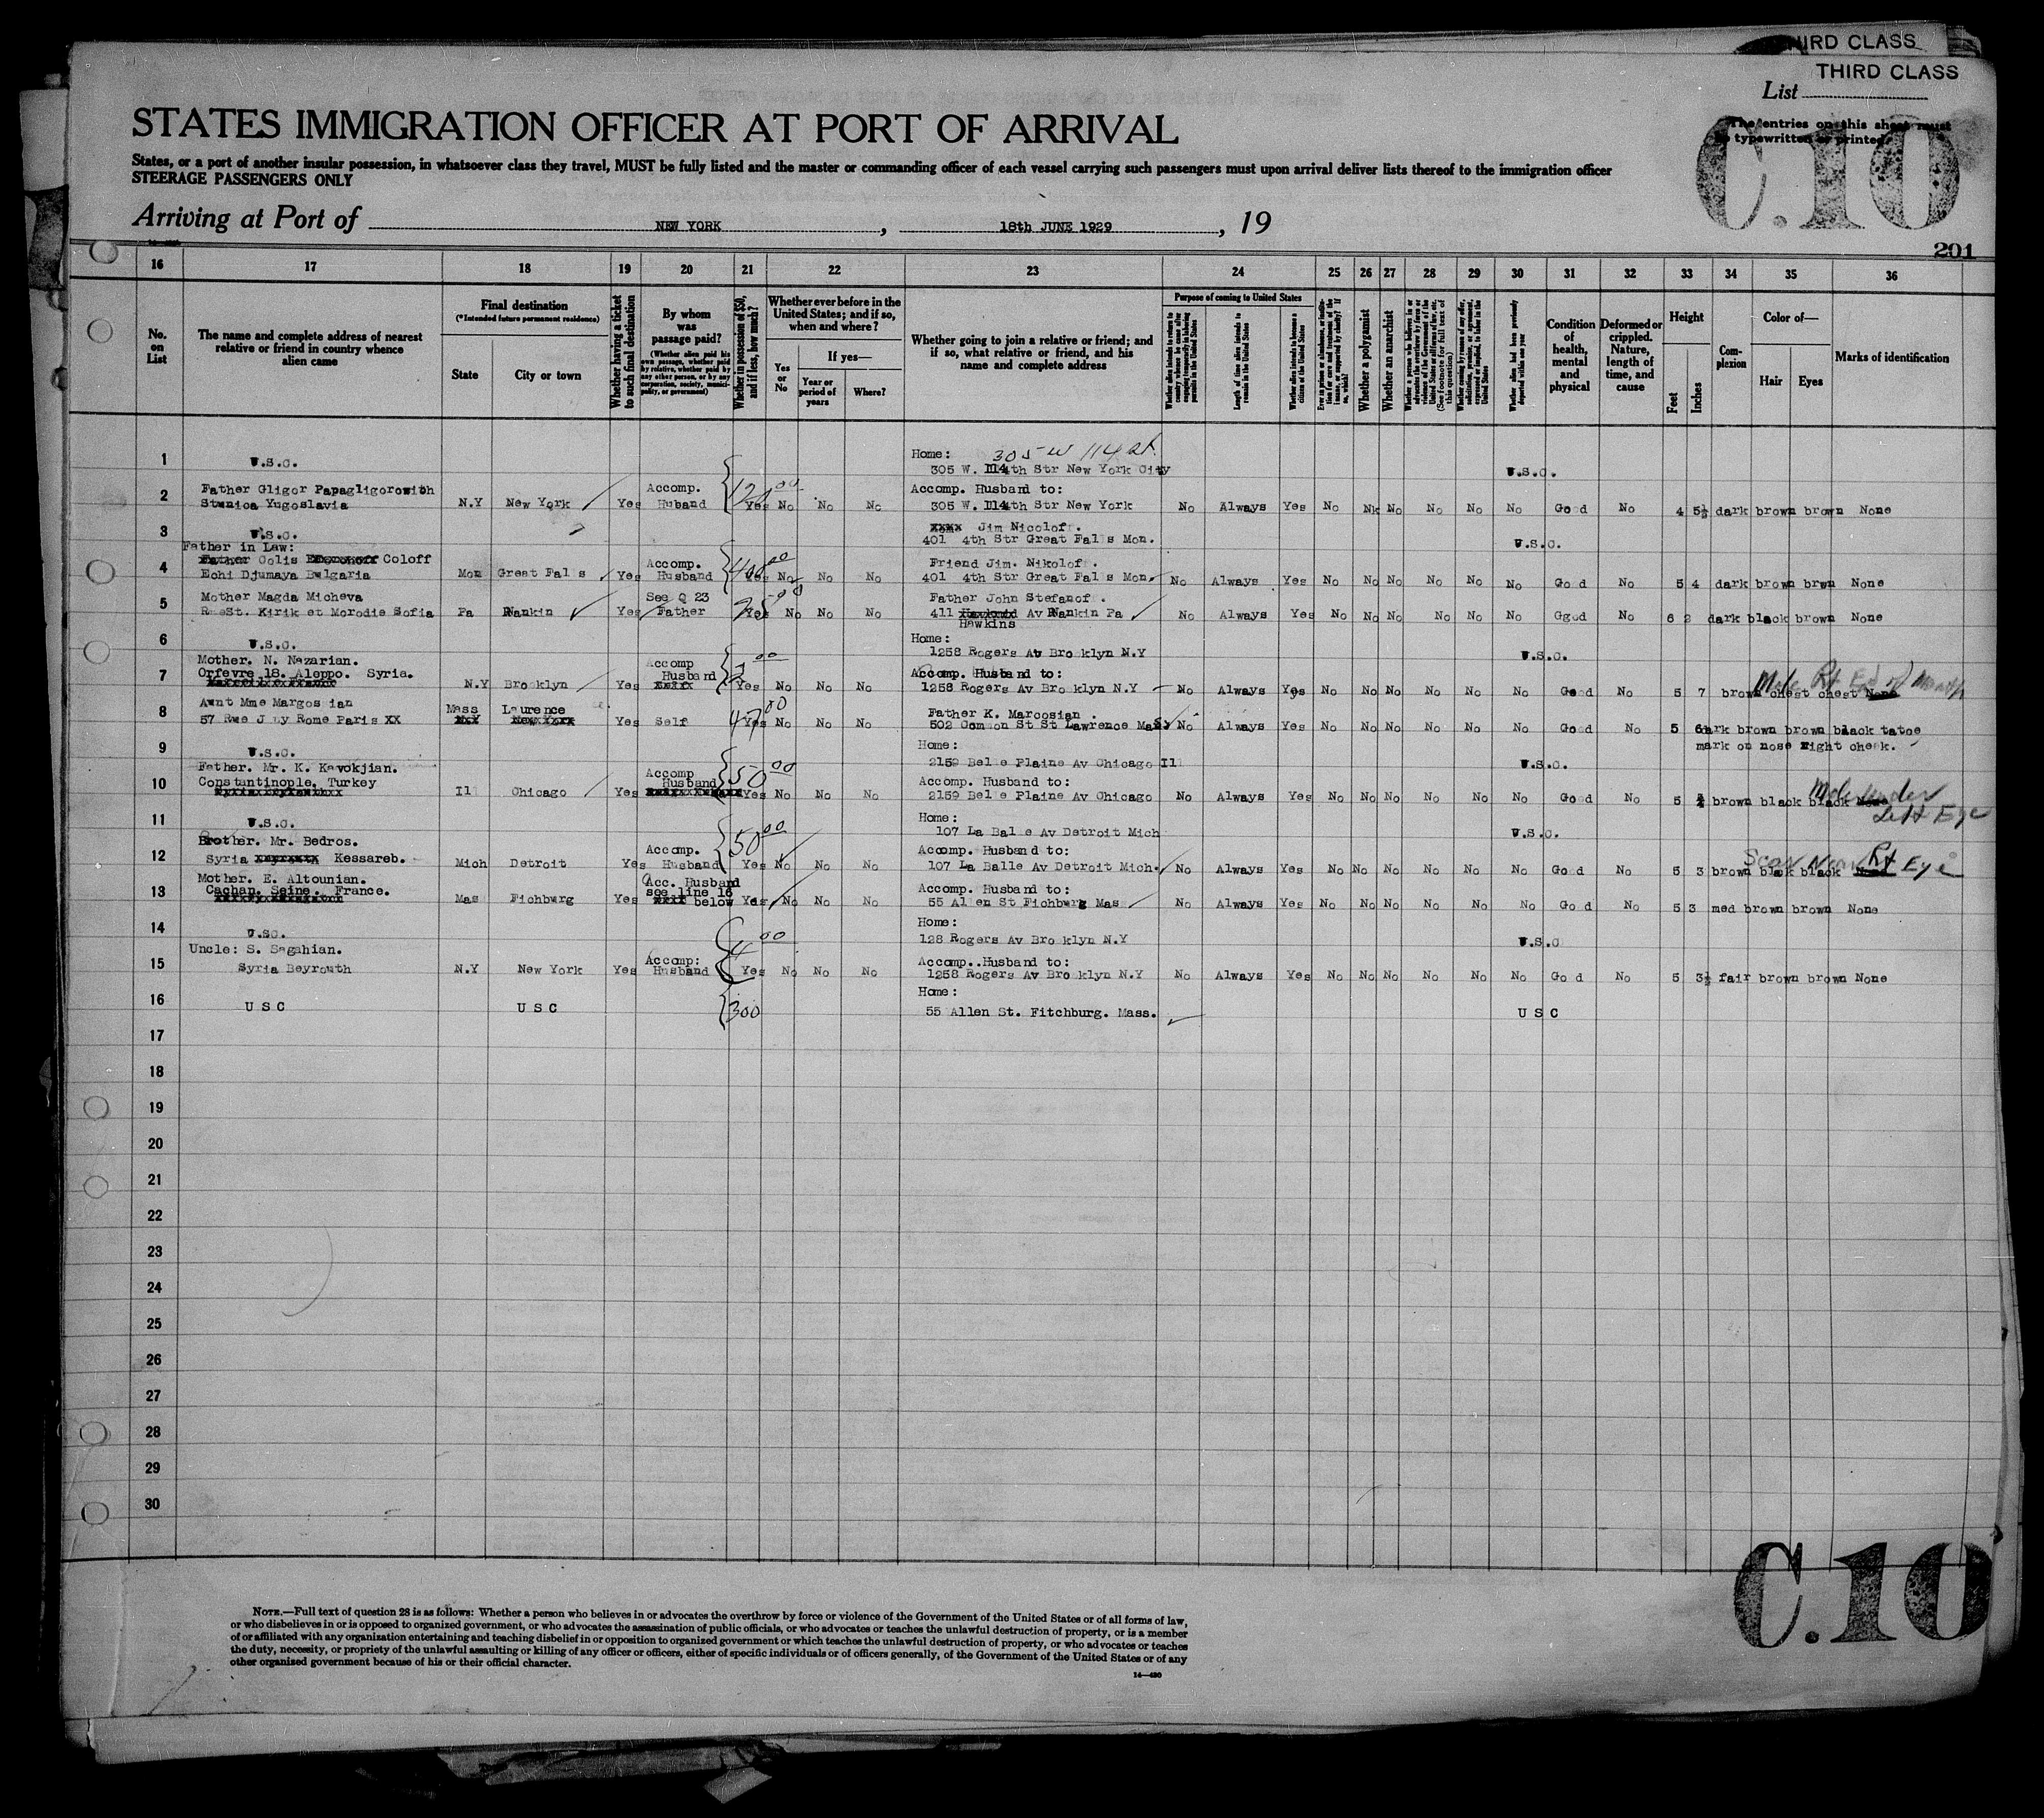 THIRD CLASS
THIRD CLASS
List
STATES IMMIGRATION OFFICER AT PORT OF ARRIVAL
The entries on this sheet must
be typewritten or printed
C.10
States, or a port of another insular possession, in whatsoever class they travel, MUST be fully listed and the master or commanding officer of each vessel carrying such passengers must upon arrival deliver lists thereof to the immigration officer
STEERAGE PASSENGERS ONLY
Arriving at Port of NEW YORK, 18th JUNE 1929, 19
201
16 17 18 19 20 21 22 23 24 25 26 27 28 29 30 31 32 33 34 35 36
No. on List
The name and complete address of nearest relative or friend in country whence alien came
Final destination
(*Intended future permanent residence)
State
City or town
Whether having a ticket to such final destination
By whom was passage paid?
(Whether alien paid his own passage, whether paid by relative, whether paid by any other person, or by any corporation, society, municipality, or government)
Whether in possession of $50, and if less, how much?
Whether ever before in the United States; and if so, when and where?
Yes or No
If yes—
Year or period of years
Where?
Whether going to join a relative or friend; and if so, what relative or friend, and his name and complete address
Purpose of coming to United States
Length of time alien intends to remain in the United States
Whether alien intends to become a citizen of the United States
Whether a polygamist
Whether an anarchist
Whether alien had been previously deported within one year
Condition of health, mental and physical
Deformed or crippled. Nature, length of time, and cause
Height
Feet
Inches
Complexion
Color of—
Hair
Eyes
Marks of identification
1 U.S.C. Home: 305 W 114 St.
305 W. 114th Str New York City U.S.C.
2 Father Gligor Papagligorowith Accomp. 120 00 Accomp. Husband to:
Stanica Yugoslavia N.Y New York Yes Huband Yes No No No 305 W. 114th Str New York No Always Yes No No No No No No Good No 4 5½ dark brown brown None
3 U.S.C. xxxx Jim Nicoloff.
401 4th Str Great Falls Mon. U.S.C.
Father in Law:
4 Father Colis Coloff Accomp. 400 00 Friend Jim. Nikoloff.
Echi Djumaya Bulgaria Mon Great Falls Yes Husband Yes No No No 401 4th Str Great Falls Mon. No Always Yes No No No No No No Good No 5 4 dark brown brwn None
5 Mother Magda Micheva See Q 23 25 00 Father John Stefanoff.
RueSt. Kirik et Morodie Sofia Pa Rankin Yes Father Yes No No No 411 Av Rankin Pa No Always Yes No No No No No No Ggod No 6 2 dark black brown None
Hawkins
6 U.S.C. Home:
1258 Rogers Av Brooklyn N.Y U.S.C.
7 Mother. N. Nazarian. Accomp 00 Accomp. Husband to: Mole Rt Ed of Mouth
Orfevre 18. Aleppo. Syria. N.Y Brooklyn Yes Husband Yes No No No 1258 Rogers Av Brooklyn N.Y No Always Yes No No No No No No Good No 5 7 brown chest chest None
8 Aunt Mme Margossian Mass Laurence 47 00 Father K. Marcosian.
57 Rue Juy Rome Paris XX Yes Self Yes No No No 502 Common St St Lawrence Mas No Always Yes No No No No No No Good No 5 6 dark brown brown black tatoe
mark on nose right cheek.
9 U.S.C. Home:
2159 Belle Plaine Av Chicago Ill U.S.C.
10 Father. Mr. K. Kavokjian. Accomp 50 00 Accomp. Husband to: Mole under
Constantinople, Turkey Ill Chicago Yes Husband Yes No No No 2159 Belle Plaine Av Chicago No Always Yes No No No No No No Good No 5 brown black black
Left Eye
11 U.S.C. Home:
107 La Balle Av Detroit Mich U.S.C.
12 Brother. Mr. Bedros. Accomp. 50 00 Accomp. Husband to: Scar Near Rt Eye
Syria Kessareb. Mich Detroit Yes Husband Yes No No No 107 La Balle Av Detroit Mich. No Always Yes No No No No No No Good No 5 3 brown black black
13 Mother. E. Altounian. Acc. Husband
Cachan. Seine. France. see line 16 Accomp. Husband to:
Mas Fichburg Yes below Yes No No No 55 Allen St Fichburg Mass No Always Yes No No No No No No Good No 5 3 med brown brown None
14 U.SC. Home:
128 Rogers Av Brooklyn N.Y U.S.C
15 Uncle: S. Sagahian. Accomp: 4 00 Accomp..Husband to:
Syria Beyrouth N.Y New York Yes Husband Yes No No No 1258 Rogers Av Brooklyn N.Y No Always Yes No No No No No No Good No 5 3½ fair brown brown None
16 U S C U S C 300 Home:
55 Allen St. Fitchburg. Mass. U S C
17
18
19
20
21
22
23
24
25
26
27
28
29
30
C.10
NOTE.—Full text of question 28 is as follows: Whether a person who believes in or advocates the overthrow by force or violence of the Government of the United States or of all forms of law,
or who disbelieves in or is opposed to organized government, or who advocates the assassination of public officials, or who advocates or teaches the unlawful destruction of property, or is a member
of or affiliated with any organization entertaining and teaching disbelief in or opposition to organized government or which teaches the unlawful destruction of property, or who advocates or teaches
the duty, necessity, or propriety of the unlawful assaulting or killing of any officer or officers, either of specific individuals or of officers generally, of the Government of the United States or of any
other organized government because of his or their official character.
14—430